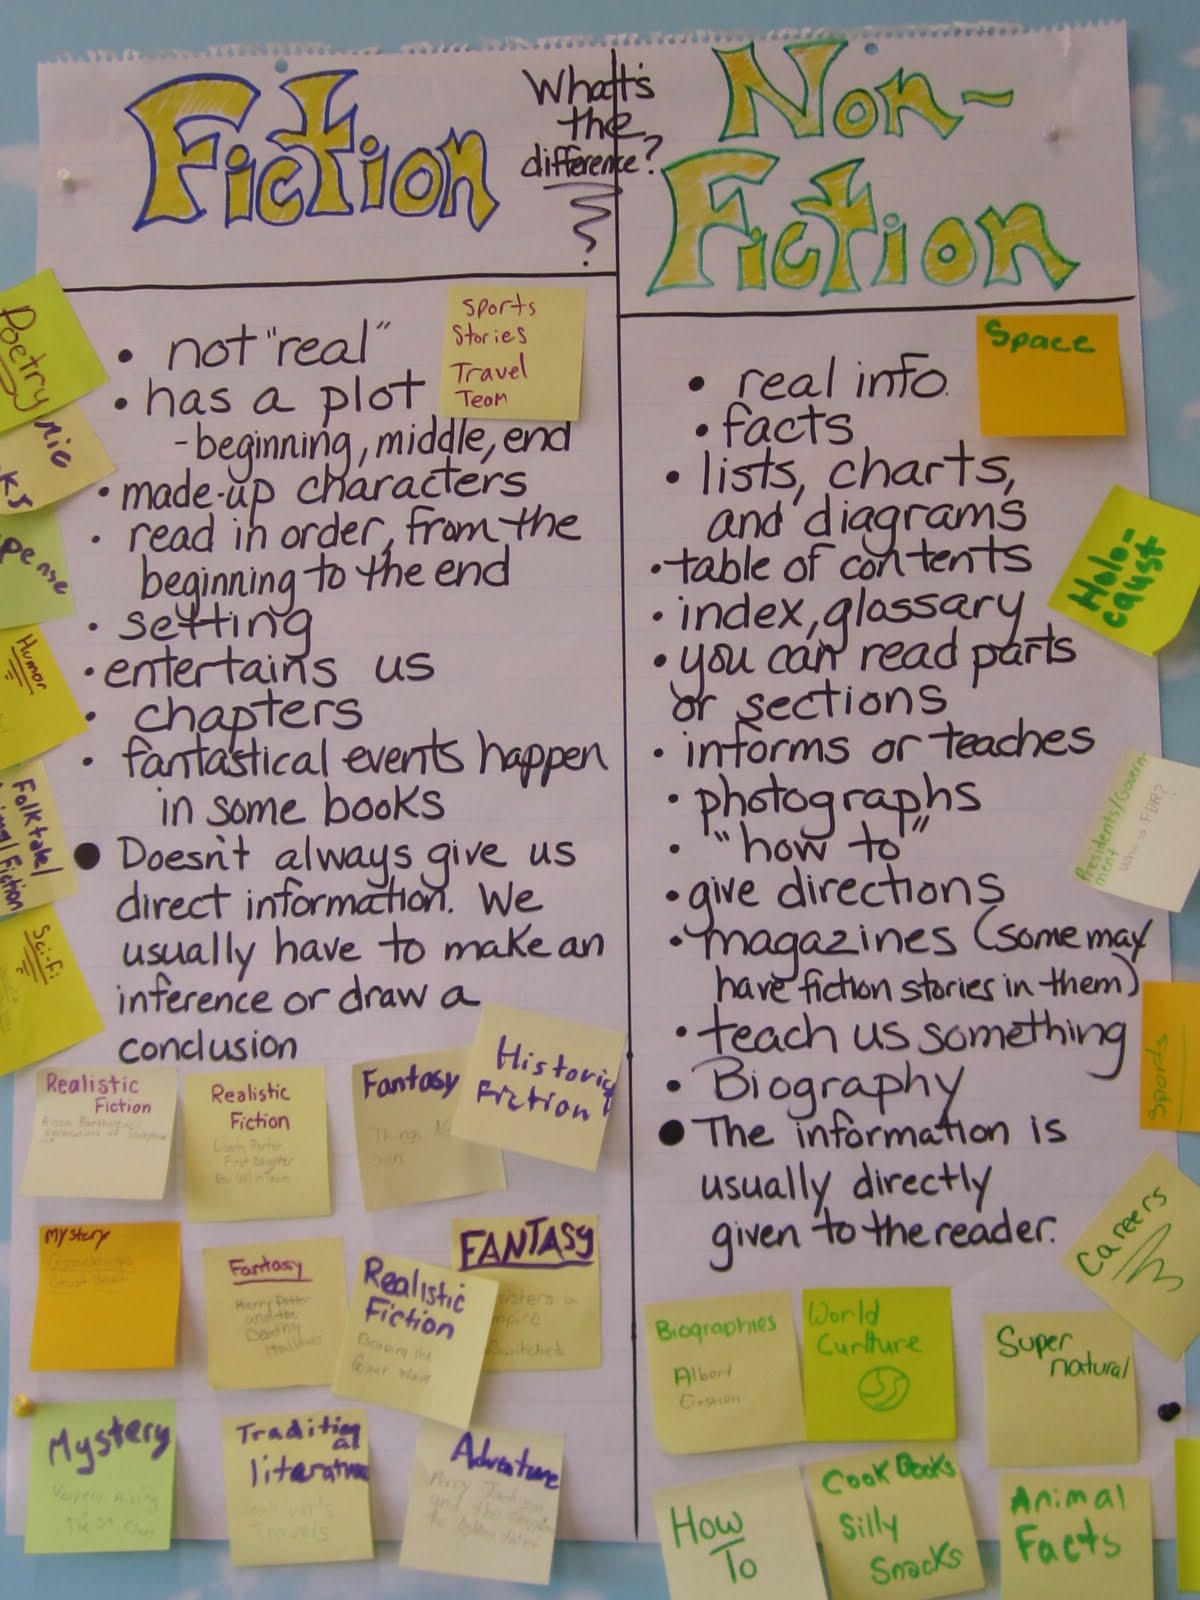 Fiction
What's
the
difference?
?
Non-
Fiction
• not "real"
• has a plot
- beginning, middle, end
• made-up characters
• read in order, from the
beginning to the end
• setting
• entertains us
• chapters
• fantastical events happen
in some books
• Doesn't always give us
direct information. We
usually have to make an
inference or draw a
conclusion
Sports
Stories
Travel
Team
Poetry
Humor
Folktale/
Fiction
Sci-Fi
Realistic
Fiction
Realistic
Fiction
Fantasy
Historic
Fiction
Mystery
Fantasy
Harry Potter
and the
Deathly
Hallows
Realistic
Fiction
Escaping the
Giant Wave
FANTASY
Switched
Mystery
Traditional
literature
Adventure
• real info.
• facts
• lists, charts,
and diagrams
• table of contents
• index, glossary
• you can read parts
or sections
• informs or teaches
• photographs
• "how to"
• give directions
• magazines (some may
have fiction stories in them)
• teach us something
• Biography
• The information is
usually directly
given to the reader.
Space
Holo-
caust
Presidents/Govern-
ment
FDR?
Sports
Careers
Biographies
Albert
Einstion
World
Curlture
Super
natural
How
To
Cook Books
Silly
Snacks
Animal
Facts